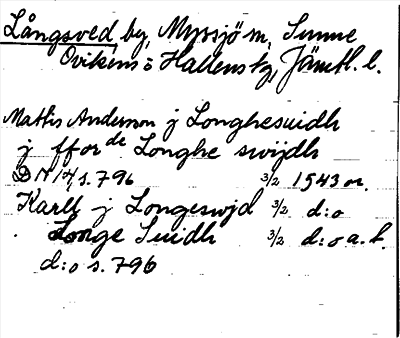 Långsved, by, Myssjö sn, Sunne
Ovikens o Hallens tg, Jämtl. l.
Mattis Anderson j Longhesuidh
j ffor de Longhe swijdh
DN 14, s. 796 3/2 1543 or.
Karll j Longeswjd 3/2 d:o
Longe Suidh 3/2 d:o a. k.
d:o s. 796